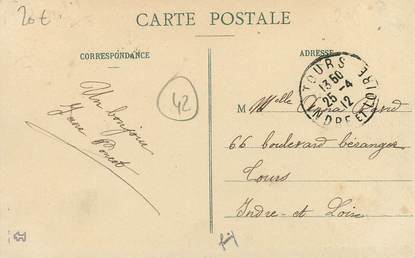 20€
CARTE POSTALE
CORRESPONDANCE
ADRESSE
TOURS
13 50
25 -4
12
INDRE ET LOIRE
Un bonjour
Jane
42
M Melle David
66 boulevard béranger
Tours
Indre-et Loire